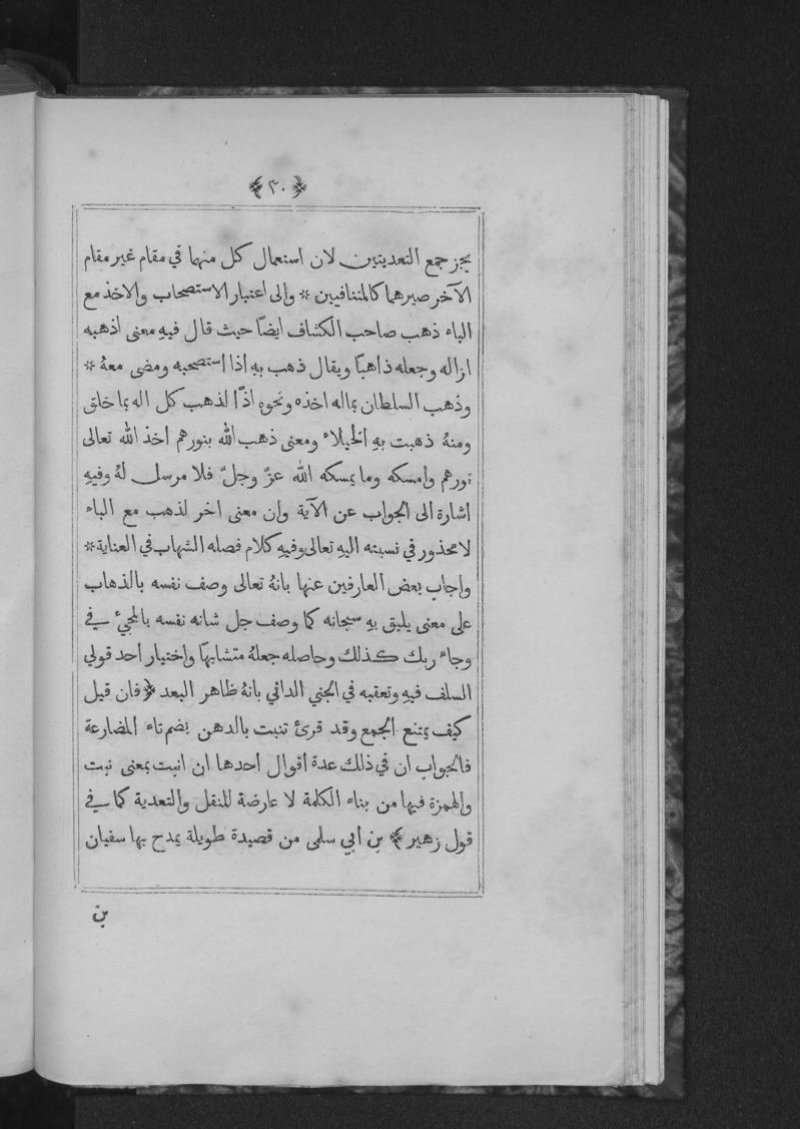 ﴿٣٠﴾
يجز جمع التعديتين لان استعمال كل منهما في مقام غير مقام
الآخر صيرهما كالمتنافيين * والى اعتبار الاستصحاب والاخذ مع
الباء ذهب صاحب الكشاف ايضًا حيث قال فيهِ معنى اذهبه
ازاله وجعله ذاهبًا ويقال ذهب بهِ اذا استصحبه ومضى معهُ *
وذهب السلطان بماله اخذه ونحوه اذًا لذهب كل اله بما خلق
ومنهُ ذهبت بهِ الخيلاء ومعنى ذهب الله بنورهم اخذ الله تعالى
نورهم وامسكه وما يمسكه الله عزّ وجلّ فلا مرسل لهُ وفيهِ
اشارة الى الجواب عن الآية وان معنى اخر لذهب مع الباء
لا محذور في نسبته اليهِ تعالى وفيهِ كلام فصله الشهاب في العناية *
واجاب بعض العارفين عنها بانهُ تعالى وصف نفسه بالذهاب
على معنى يليق بهِ سبحانه كما وصف جل شانه نفسه بالمجيء في
وجاء ربك كذلك وحاصله جعلهُ متشابهًا واختيار احد قولي
السلف فيهِ وتعقبه في الجنى الداني بانهُ ظاهر البعد ﴿ فان قيل
كيف يمتنع الجمع وقد قرئ تنبت بالدهن بضم تاء المضارعة
فالجواب ان في ذلك عدة أقوال أحدها ان انبت بمعنى نبت
والهمزة فيها من بناء الكلمة لا عارضة للنقل والتعدية كما في
قول زهير ﴾ بن أبي سلمى من قصيدة طويلة يمدح بها سفيان
بن